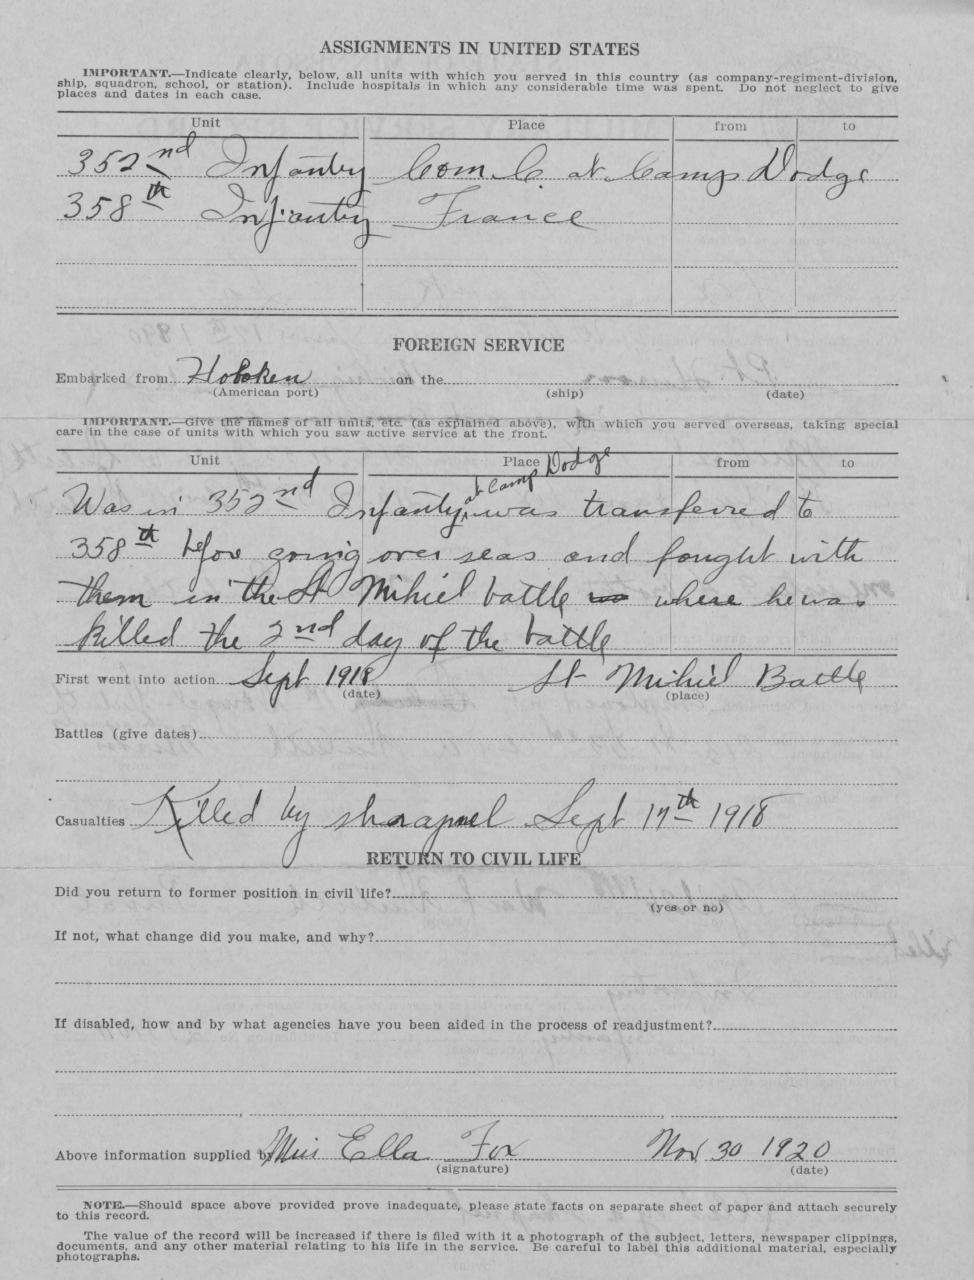 ASSIGNMENTS IN UNITED STATES
IMPORTANT.—Indicate clearly, below, all units with which you served in this country (as company-regiment-division,
ship, squadron, school, or station). Include hospitals in which any considerable time was spent. Do not neglect to give
places and dates in each case.
Unit Place from to
352nd Infantry Com. C. at Camp Dodge
358th Infantry France
FOREIGN SERVICE
Embarked from Hoboken on the
(American port) (ship) (date)
IMPORTANT.—Give the names of all units, etc. (as explained above), with which you served overseas, taking special
care in the case of units with which you saw active service at the front.
Unit Place from to
Was in 352nd Infantry at Camp Dodge was transferred to
358th before going over seas and fought with
them in the St Mihiel battle where he was
killed the 2nd day of the battle
First went into action Sept 1918 St Mihiel Battle
(date) (place)
Battles (give dates)
Casualties Killed by shrapnel Sept 17th 1918
RETURN TO CIVIL LIFE
Did you return to former position in civil life?
(yes or no)
If not, what change did you make, and why?
If disabled, how and by what agencies have you been aided in the process of readjustment?
Above information supplied by Miss Ella Fox Nov 30 1920
(signature) (date)
NOTE.—Should space above provided prove inadequate, please state facts on separate sheet of paper and attach securely
to this record.
The value of the record will be increased if there is filed with it a photograph of the subject, letters, newspaper clippings,
documents, and any other material relating to his life in the service. Be careful to label this additional material, especially
photographs.